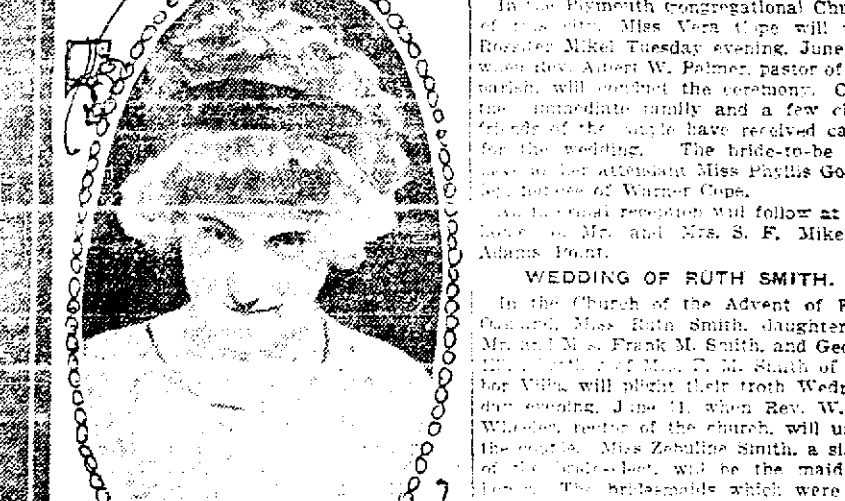 In the Plymouth Congregational Chu
of this city, Miss Vera Cope will
Rossiter Mikel Tuesday evening, June
when Rev. Albert W. Palmer, pastor of
parish, will conduct the ceremony. O
the immediate family and a few cl
friends of the couple have received ca
for the wedding. The bride-to-be
have as her attendant Miss Phyllis Go
of Warner Cope.
An informal reception will follow at
home of Mr. and Mrs. S. F. Mike
Adams Point.
WEDDING OF RUTH SMITH.
In the Church of the Advent of
Miss Ruth Smith, daughter
Mr. and Mrs. Frank M. Smith, and Geo
of Mrs. F. M. Smith of
bor Villa, will plight their troth Wedn
day evening, June 11, when Rev. W.
Wheeler, rector of the church, will u
the couple. Miss Zebuline Smith, a si
of the bride-elect, will be the maid
The bridesmaids which were